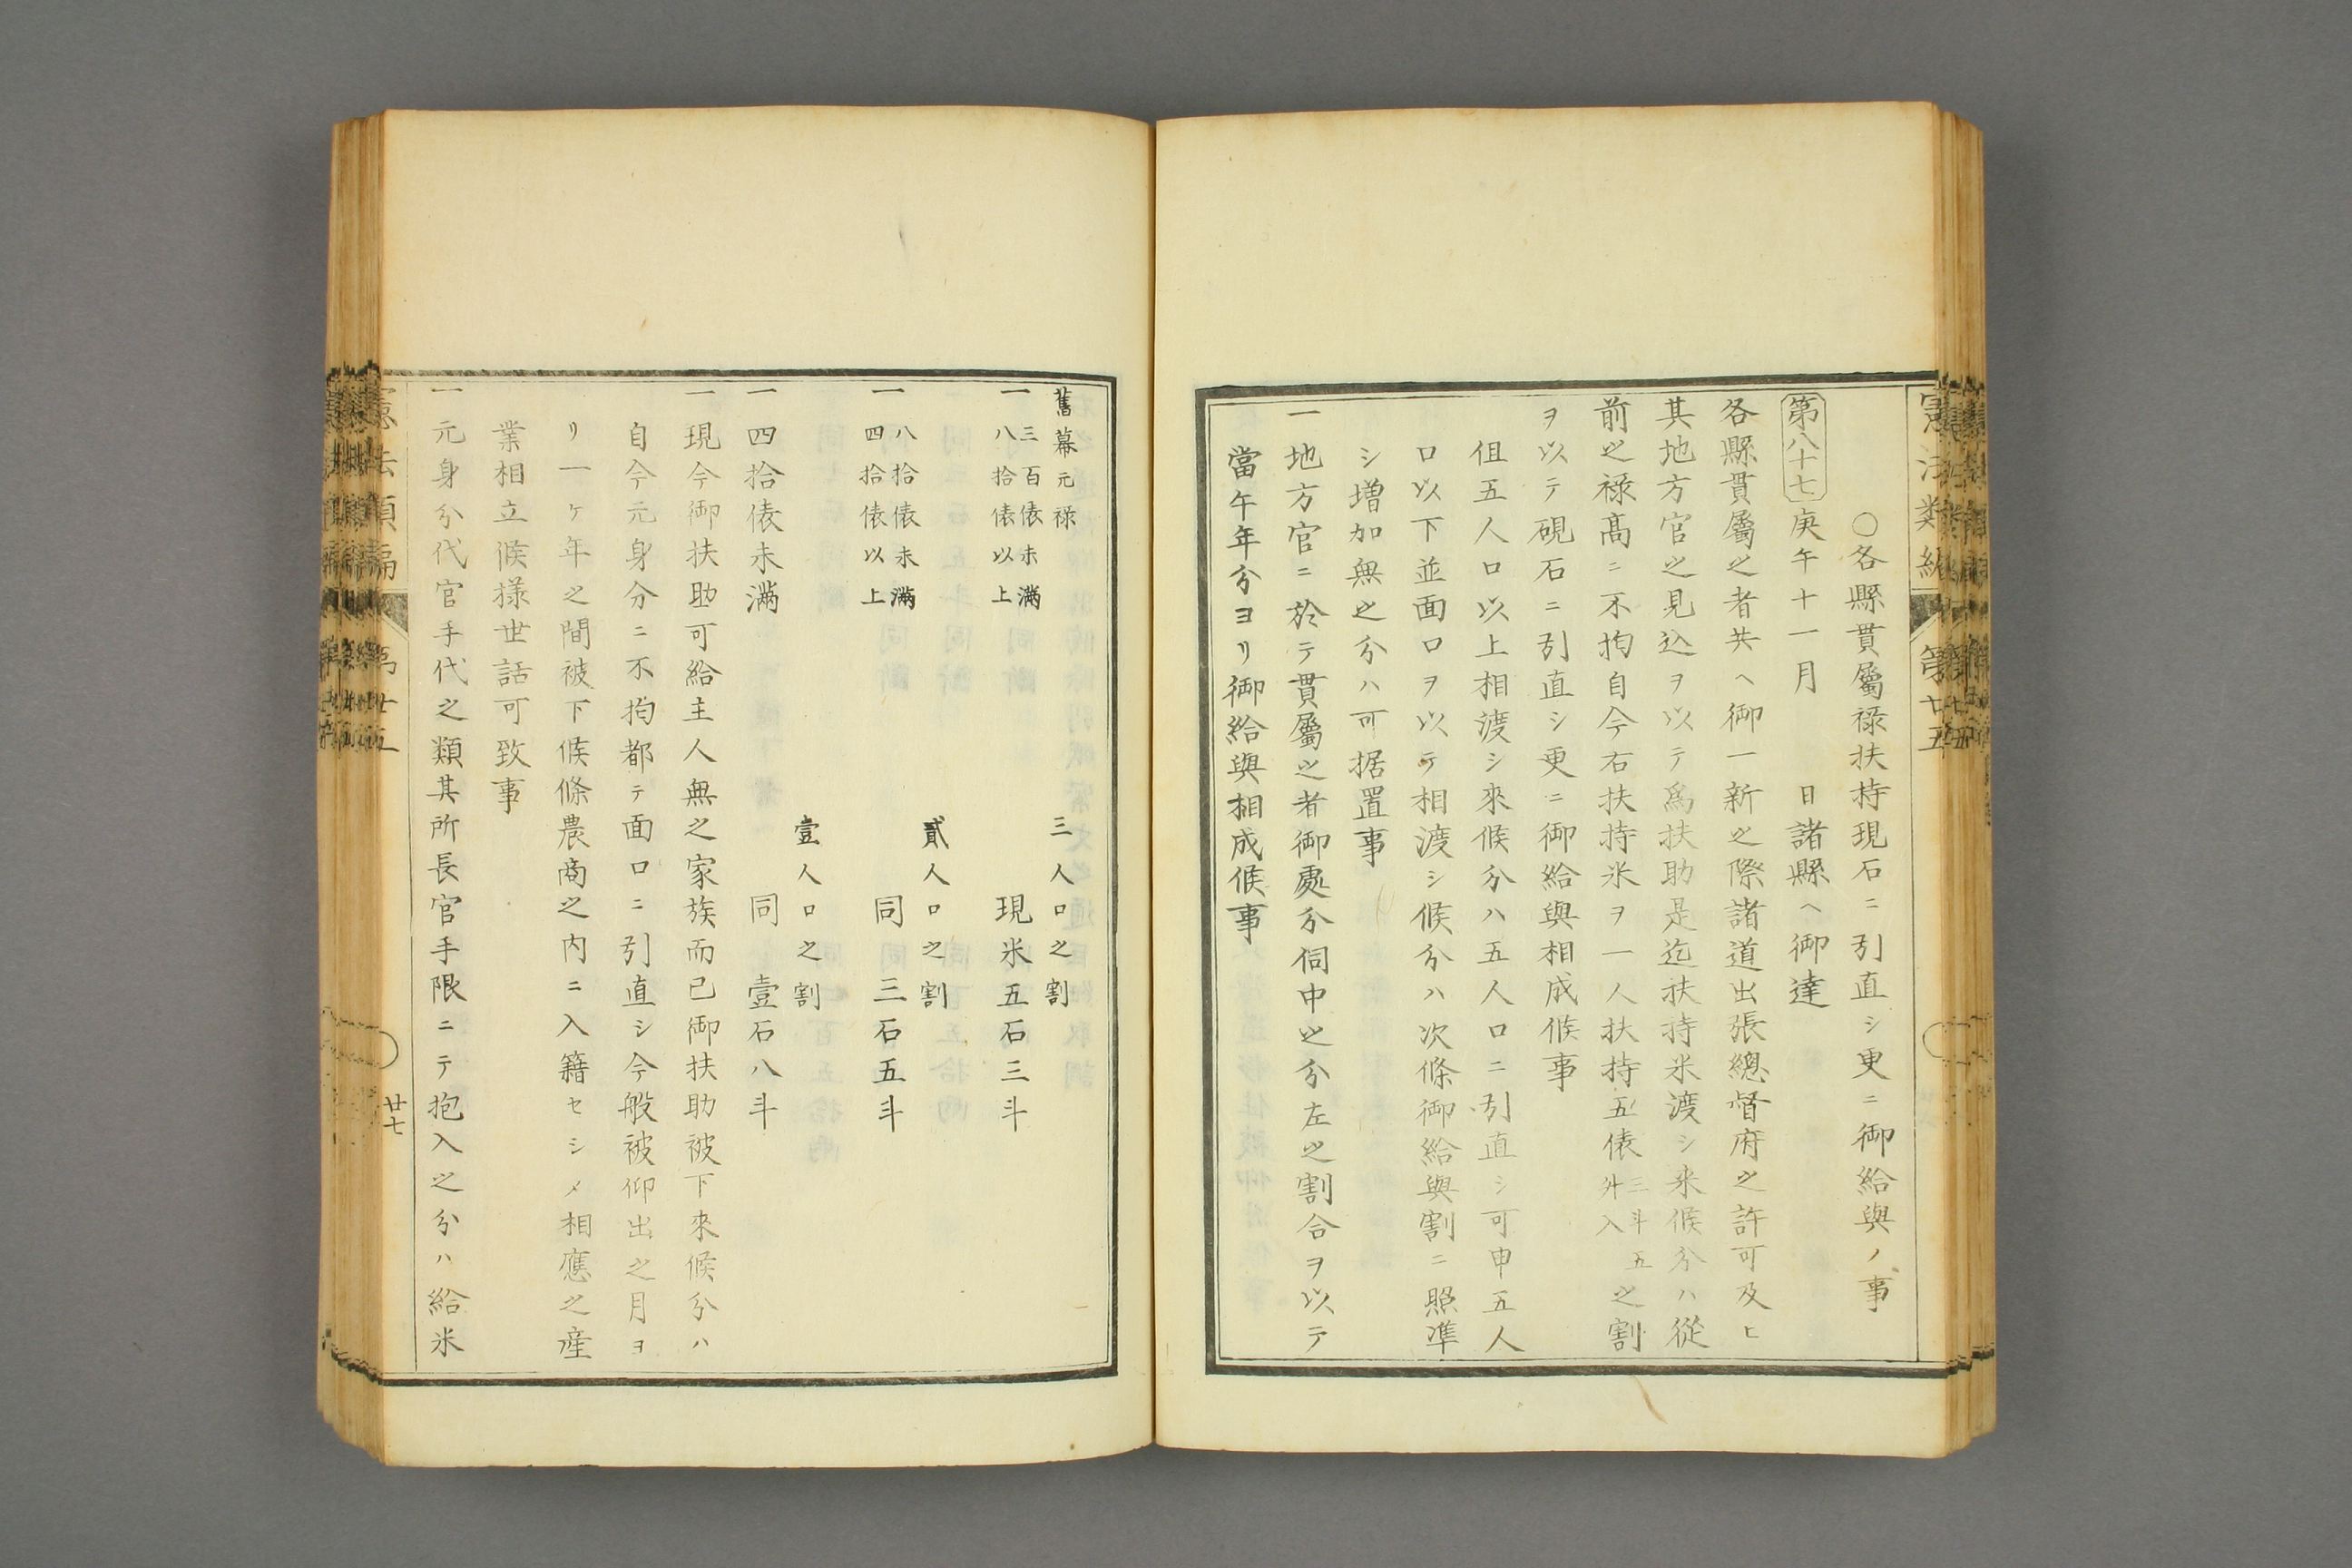 ○各縣貫屬祿扶持現石ニ引直シ更ニ御給與ノ事
第八十七 庚午十一月 日諸縣ヘ御達
各縣貫屬之者共ヘ御一新之際諸道出張總督府之許可及ヒ
其地方官之見込ヲ以テ爲扶助是迄扶持米渡シ来候分ハ從
前之祿高ニ不拘自今右扶持米ヲ一人扶持五俵三斗五升入之割
ヲ以テ硯石ニ引直シ更ニ御給與相成候事
伹五人口以上相渡シ來候分ハ五人口ニ引直シ可申五人
口以下並面口ヲ以テ相渡シ候分ハ次條御給與割ニ照準
シ増加無之分ハ可据置事
一地方官ニ於テ貫屬之者御處分伺中之分左之割合ヲ以テ
當午年分ヨリ御給與相成候事
舊幕元祿
三人口之割
一三百俵未滿八拾俵以上 現米五石三斗
貳人口之割
一八拾俵未滿四拾俵以上 同 三石五斗
壹人口之割
一四拾俵未滿 同 壹石八斗
一現今御扶助可給主人無之家族而已御扶助被下來候分ハ
自今元身分ニ不拘都テ面口ニ引直シ今般被仰出之月ヨ
リ一ケ年之間被下候條農商之内ニ入籍セシメ相應之産
業相立候様世話可致事
一元身分代官手代之類其所長官手限ニテ抱入之分ハ給米
廿七